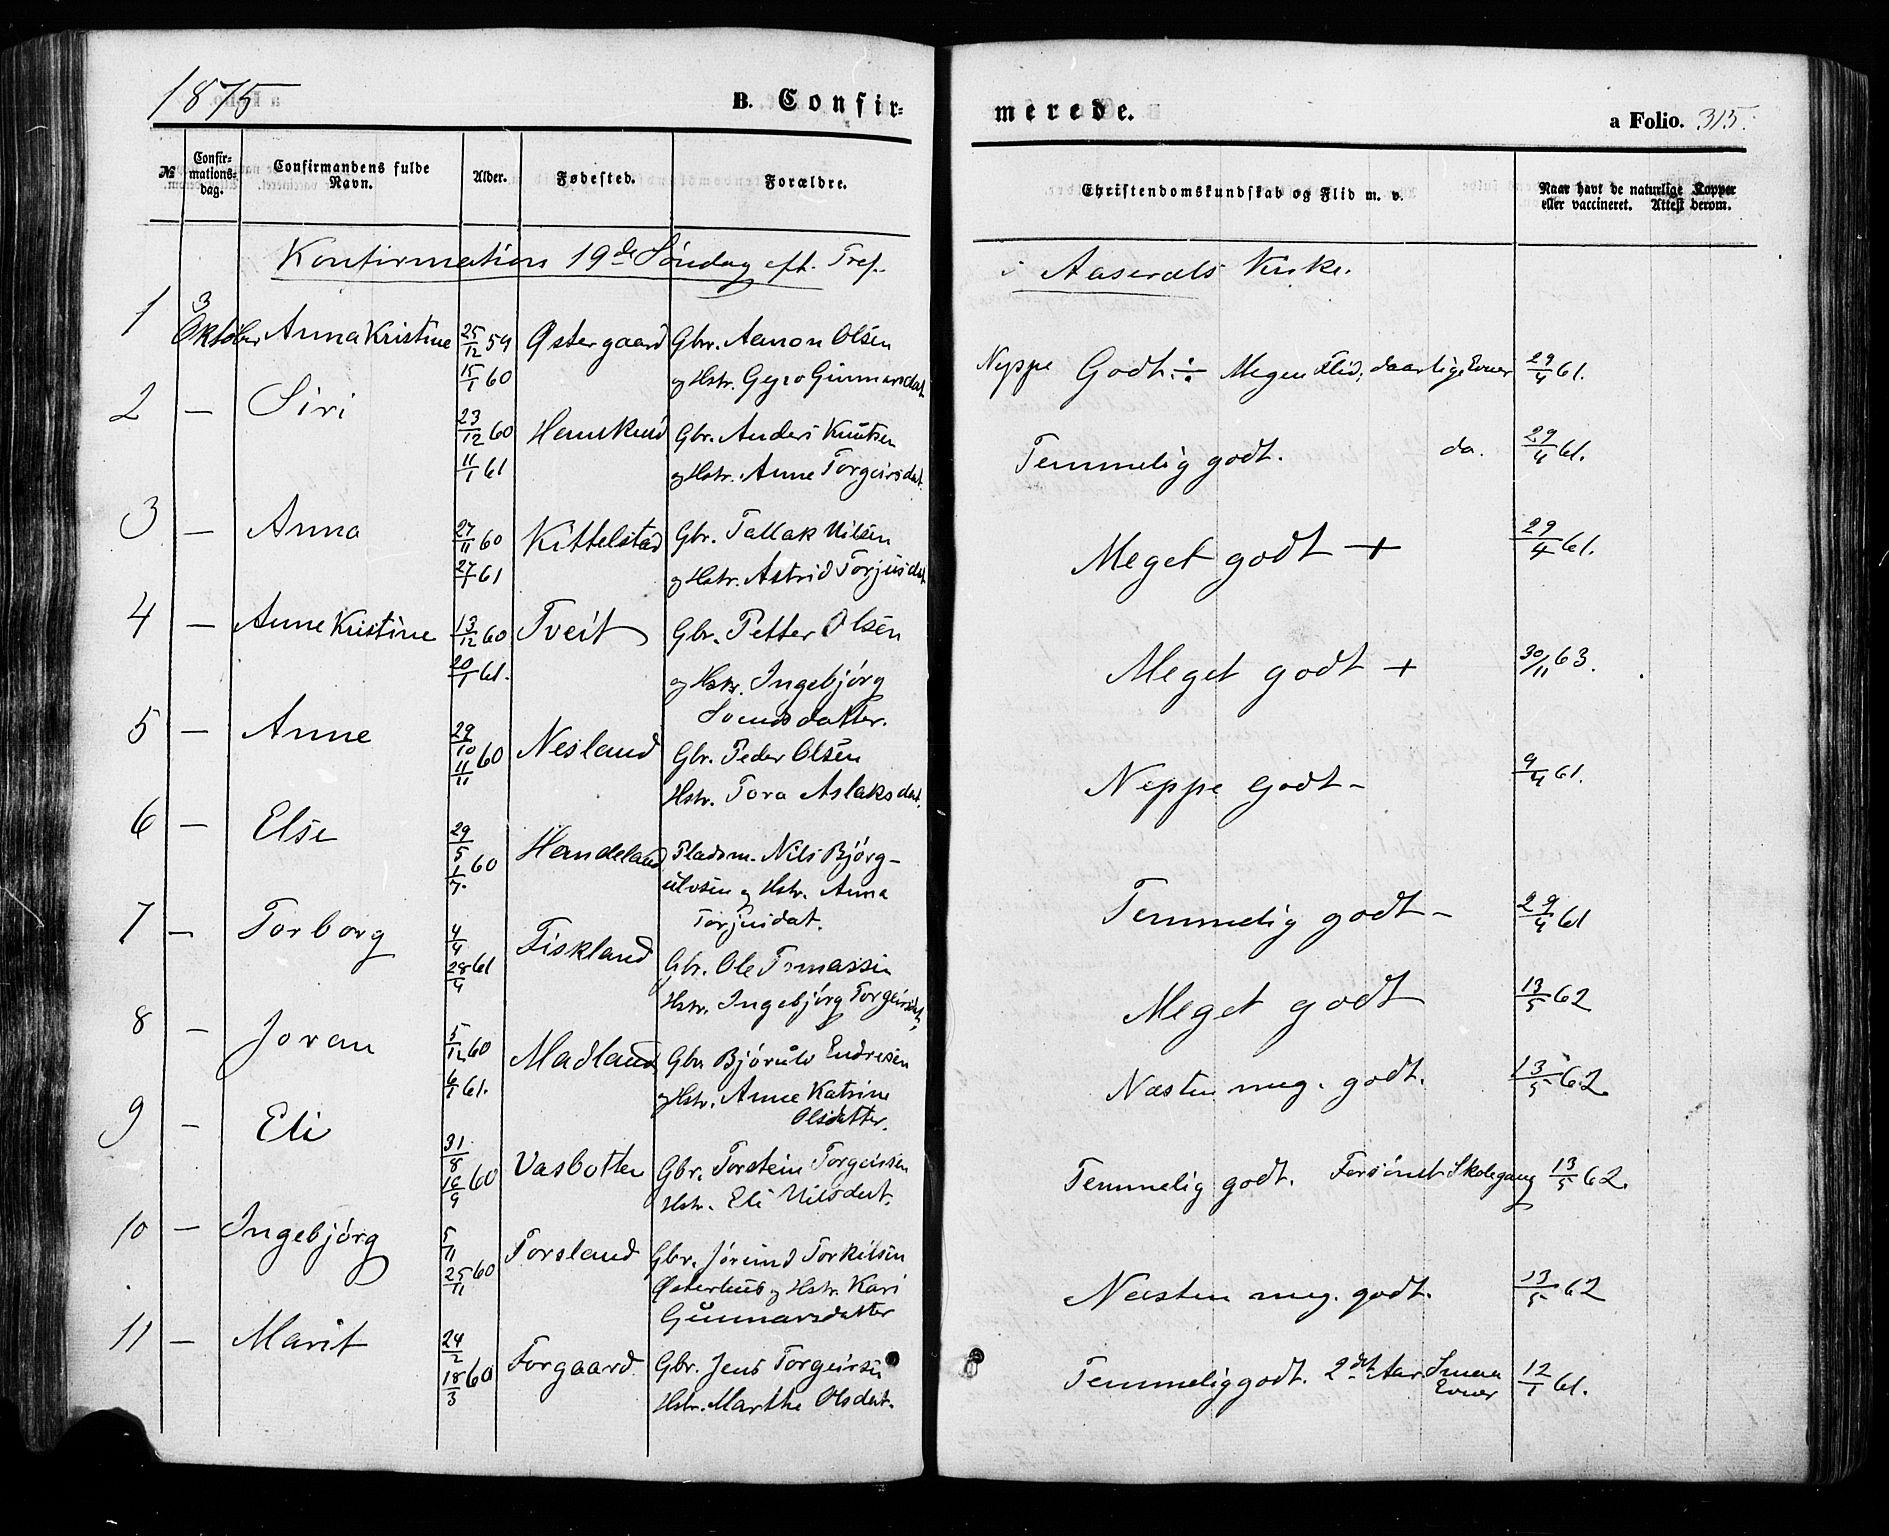 1875
B. Confir-
merede.
a Folio. 315.
№
Confir-
mations-
dag.
Confirmandens fulde
Navn.
Alder.
Fødested.
Forældre.
Christendomskundskab og Flid m. v.
Naar havt de naturlige Kopper
eller vaccineret. Attest derom.
Konfirmation 19de Søndag eft. Tref.
i Aaserals Kirke.
1 3 Oktober Anna Kristine 25/12 59 15/1 60 Østergaard Gbr. Aanon Olsen
og Hstr. Gyro Gunnarsdat
Neppe Godt ÷ Megen Flid, daarlige Evner 29/4 61.
2 — Siri 23/12 60 11/1 61 Hamkind Gbr. Anders Knutsen
og Hstr. Anne Torgeirsdat.
Temmelig godt. do. 29/4 61.
3 — Anna 27/11 60 27/1 61 Kittelstad Gbr. Tallak Nilsen
og Hstr. Astrid Torjusdat
Meget godt + 29/4 61.
4 — Anne Kristine 13/12 60 20/1 61. Tveit Gbr. Petter Olsen
og Hstr. Ingebjørg
Svendsdatter.
Meget godt + 30/11 63.
5 — Anne 29/10 11/11 60 Nesland Gbr. Peder Olsen
Hstr. Tora Aslaksdat.
Neppe Godt - 9/4 61.
6 — Else 29/5 1/7. 60 Handeland Pladsm. Nils Bjørg-
ulvsen og Hstr. Anna
Torjusdat.
Temmelig godt - 29/4 61
7 — Torborg 4/4 28/4 61 Fiskland Gbr. Ole Tomassen
Hstr. Ingebjørg Torgeirsdat.
Meget godt 13/5 62
8 — Joran 5/12 60 6/1 61. Madland Gbr. Bjørulv Endresen
og Hstr. Anne Katrine
Olsdatter.
Næsten meg. godt. 13/5 62
9 — Eli 31/8 16/9 60 Vasbotten Gbr. Torstein Torgeirsen
Hstr. Eli Nilsdat.
Temmelig godt. Forsømt Skolegang 13/5 62.
10 — Ingebjørg 5/11 25/11 60 Torsland Gbr. Jørund Torkilsen
Østerhus og Hstr. Kari
Gunnarsdatter
Næsten meg. godt. 13/5 62
11 — Marit 24/2 18/3 60 Forgaard Gbr. Jens Torgeirsen
Hstr. Marthe Olsdat.
Temmelig godt. 2det Aar Smaa
Evner 12/1 61.